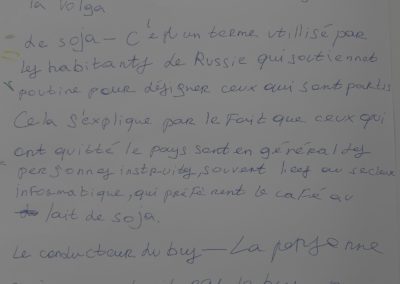 la Volga
de soja — C'est un terme utillisé par
les habitants de Russie qui soutiennet
poutine pour désigner ceux qui sont partis
Cela s'explique par le Fait que ceux qui
ont quitté le pays sont en général des
personnes instruits, souvent liees au secteur
informatique, qui préfèrent le café au
lait de soja.
Le conducteur du bus — La personne